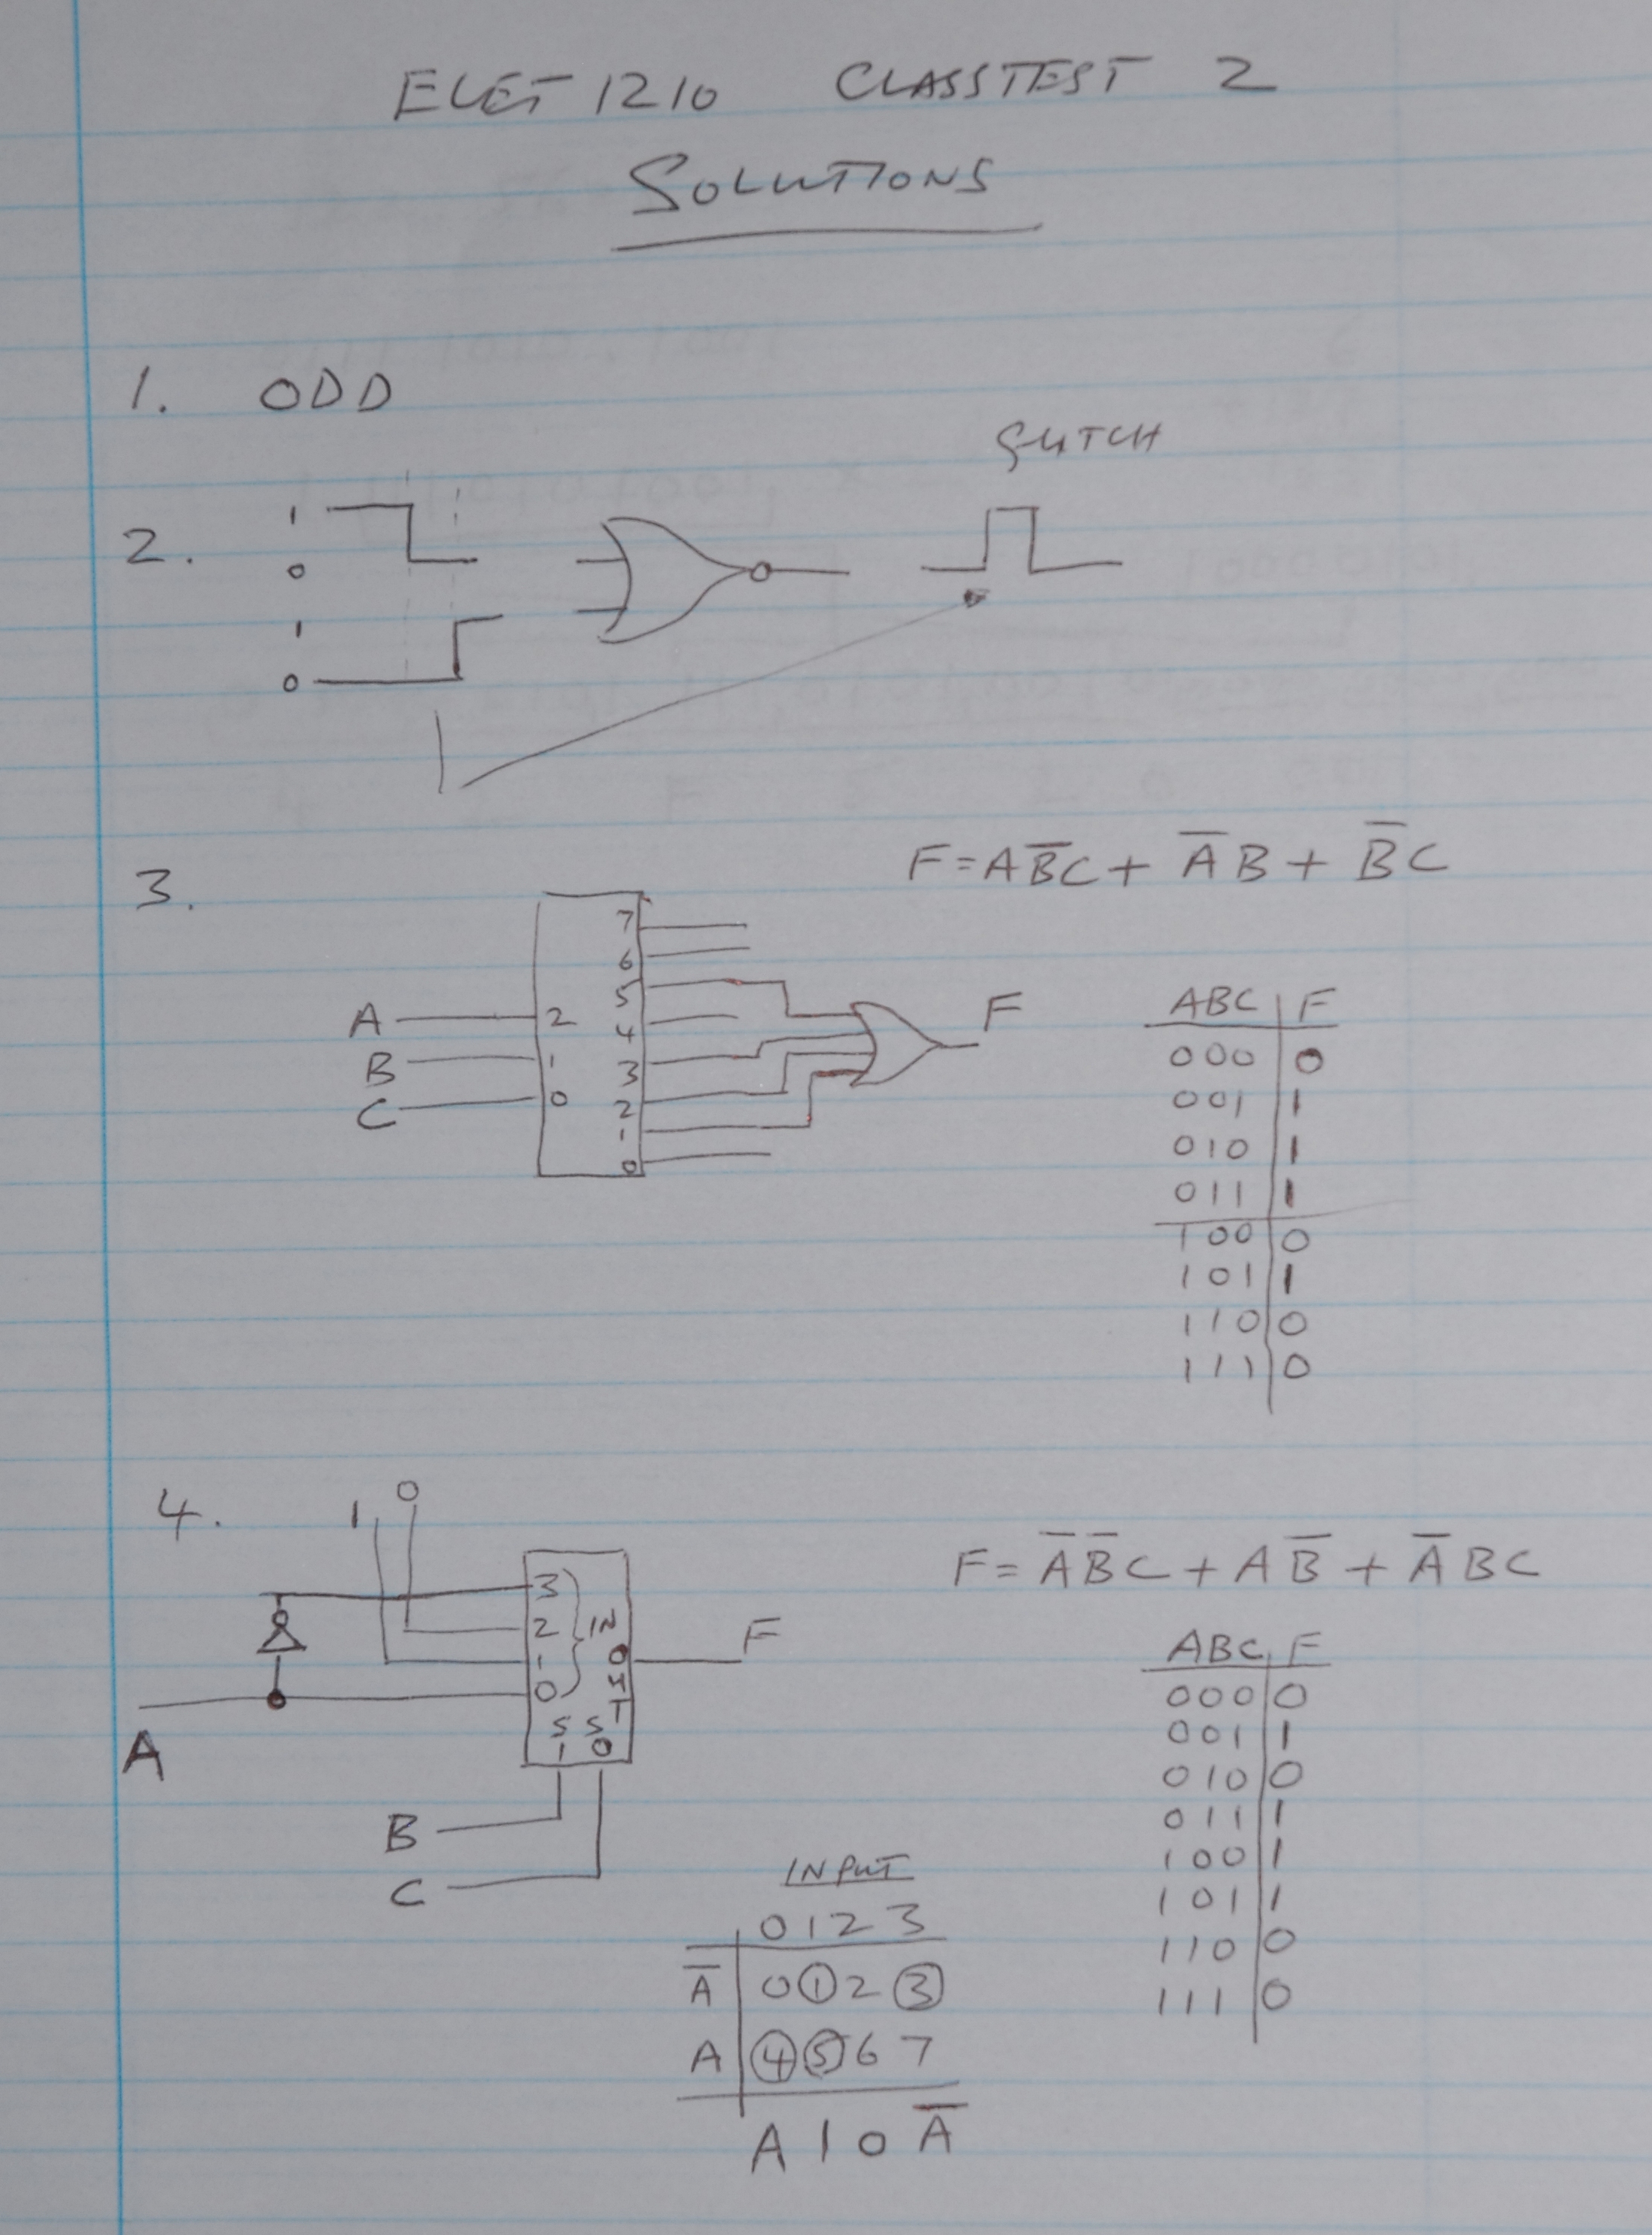 ELET1210 CLASSTEST 2
SOLUTIONS
1. ODD
GLITCH
2.
1
0
1
0
3.
F=AB̅C + A̅B + B̅C
7
6
5
A 2 4
B 1 3
C 0 2
1
0
F
ABC F
000 0
001 1
010 1
011 1
100 0
101 1
110 0
111 0
4.
1 0
F= A̅B̅C + AB̅ + A̅BC
3
2 IN
1
0
OUT
F
S S
1 0
A
B
C
ABC F
000 0
001 1
010 0
011 1
100 1
101 1
110 0
111 0
INPUT
0 1 2 3
A̅ 0 1 2 3
A 4 5 6 7
A 1 0 A̅